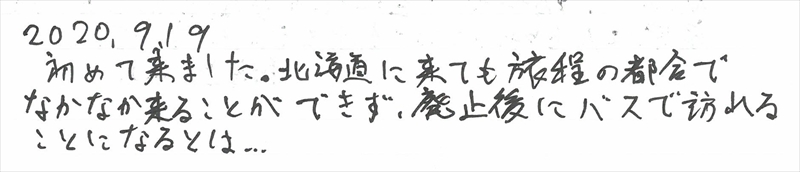 2020.9.19
初めて来ました。北海道に来ても旅程の都合で
なかなか来ることができず、廃止後にバスで訪れる
ことになるとは…